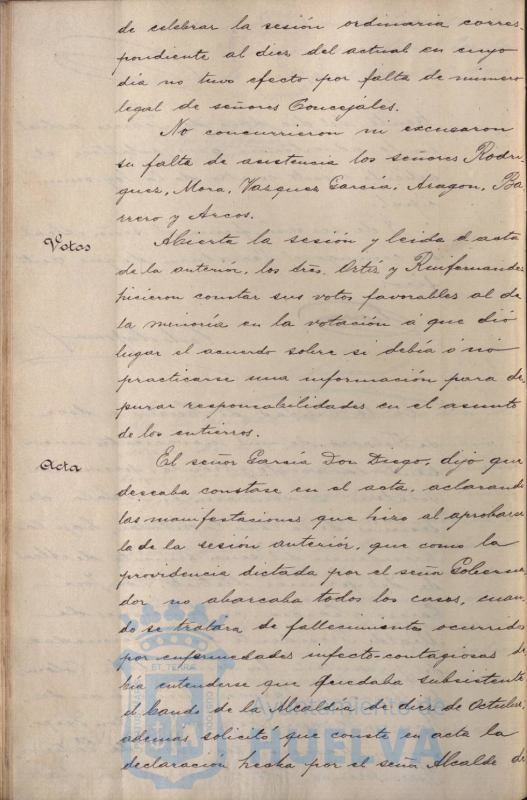 de celebrar la sesión ordinaria corres-
pondiente al diez del actual en cuyo
día no tuvo efecto por falta de número
legal de señores Concejales.
No concurrieron ni excusaron
su falta de asistencia los señores Rodri
guez, Mora, Vazquez Garcia, Aragon, Ba
rrero y Arcos.
Votos
Abierta la sesión y leida el acta
de la anterior, los Sres. Ortiz y Ruifernandez
hicieron constar sus votos favorables al de
la minoría en la votación á que dió
lugar el acuerdo sobre si debía ó no
practicarse una información para de
purar responsabilidades en el asunto
de los entierros.
Acta
El señor García Don Diego, dijo que
deseaba constase en el acta, aclarando
las manifestaciones que hizo al aprobarse
la de la sesión anterior, que como la
providencia dictada por el señor Goberna
dor no abarcaba todos los casos, cuan
do se tratára de fallecimientos ocurridos
por enfermedades infecto-contagiosas de
bia entenderse que quedaba subsistente
el bando de la Alcaldía de diez de Octubre,
ademas solicitó que conste en acta la
declaracion hecha por el señor Alcalde de
Ayuntamiento de
HUELVA